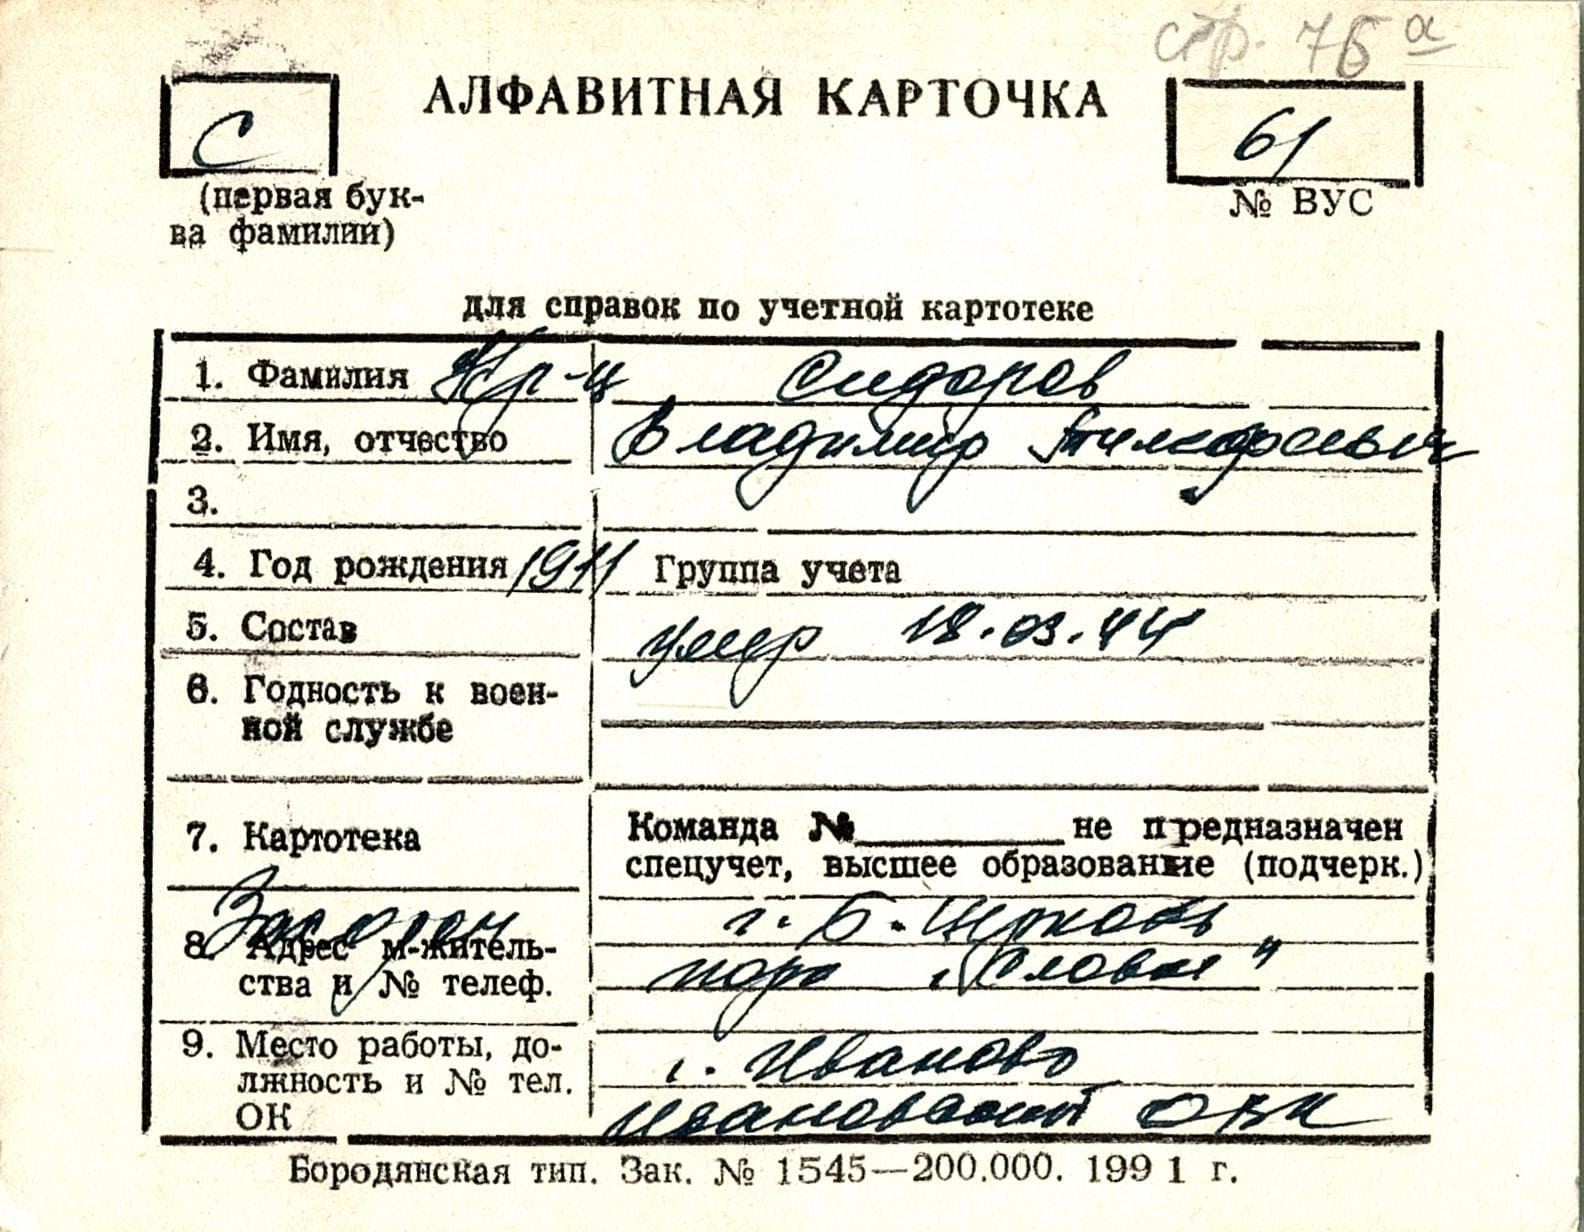 стр. 76 а
АЛФАВИТНАЯ КАРТОЧКА
С
61
(первая бук-
ва фамилии)
№ ВУС
для справок по учетной картотеке
1. Фамилия Кр-ц Сидоров
2. Имя, отчество Владимир Тимофеевич
3.
4. Год рождения 1911 Группа учета
5. Состав умер 18.03.44
6. Годность к воен-
ной службе
7. Картотека Команда № не предназначен
спецучет, высшее образование (подчерк.)
Захорон г. Б. Церковь
8. Адрес м-житель-
парк "Слава"
ства и № телеф.
9. Место работы, до- г. Иваново
лжность и № тел.
ОК Ивановский ОВК
Бородянская тип. Зак. № 1545—200.000. 1991 г.